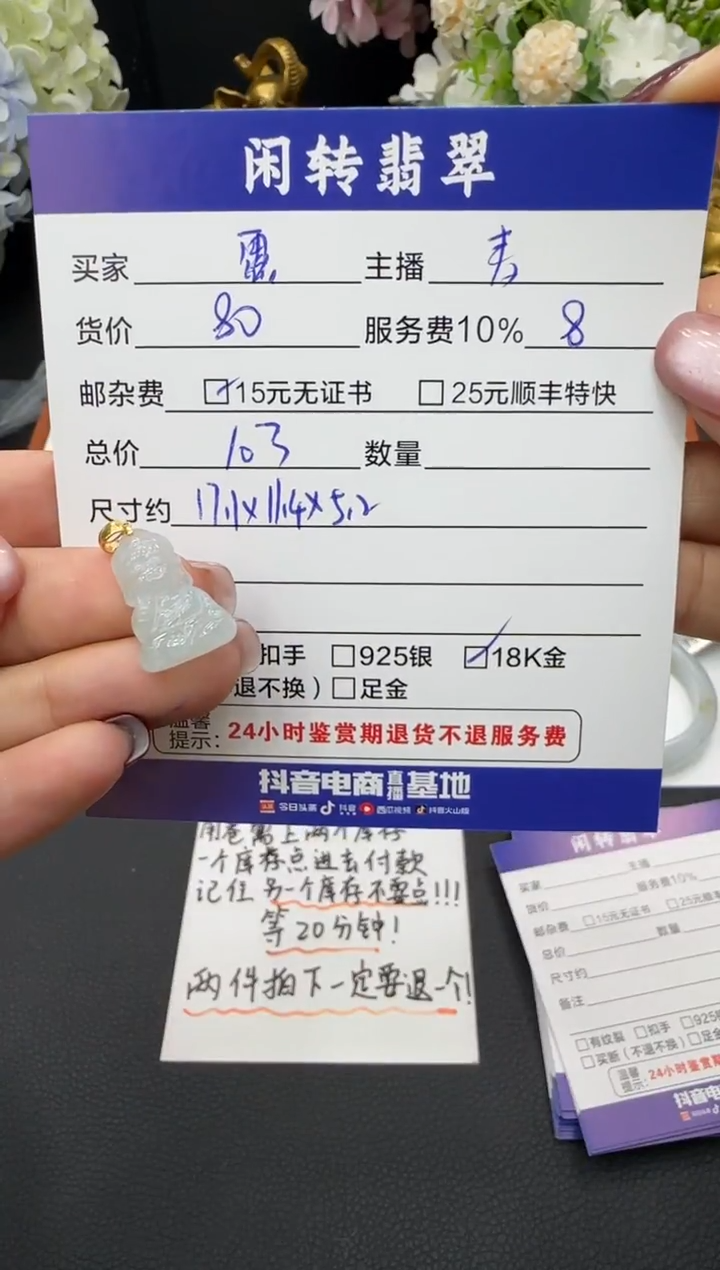 闲转翡翠
买家 主播
货价 80 服务费10% 8
邮杂费 ☑15元无证书 □25元顺丰特快
总价 103 数量
尺寸约 17.1x11.4x5.2
扣手 □925银 ☑18K金
退不换）□足金
温馨
提示：24小时鉴赏期退货不退服务费
抖音电商直播基地
头条 今日头条 抖音 西瓜视频 抖音火山版
一个库存点进去付款
记住 另一个库存不要点!!!
等20分钟!
两件拍下一定要退一个!
闲转翡翠
买家 主播
货价 服务费10%
邮杂费 □15元无证书 □25元顺
总价 数量
尺寸约
备注
□有纹裂 □扣手 □925
□买断（不退不换）□足金
温馨
提示：24小时鉴赏期
抖音电